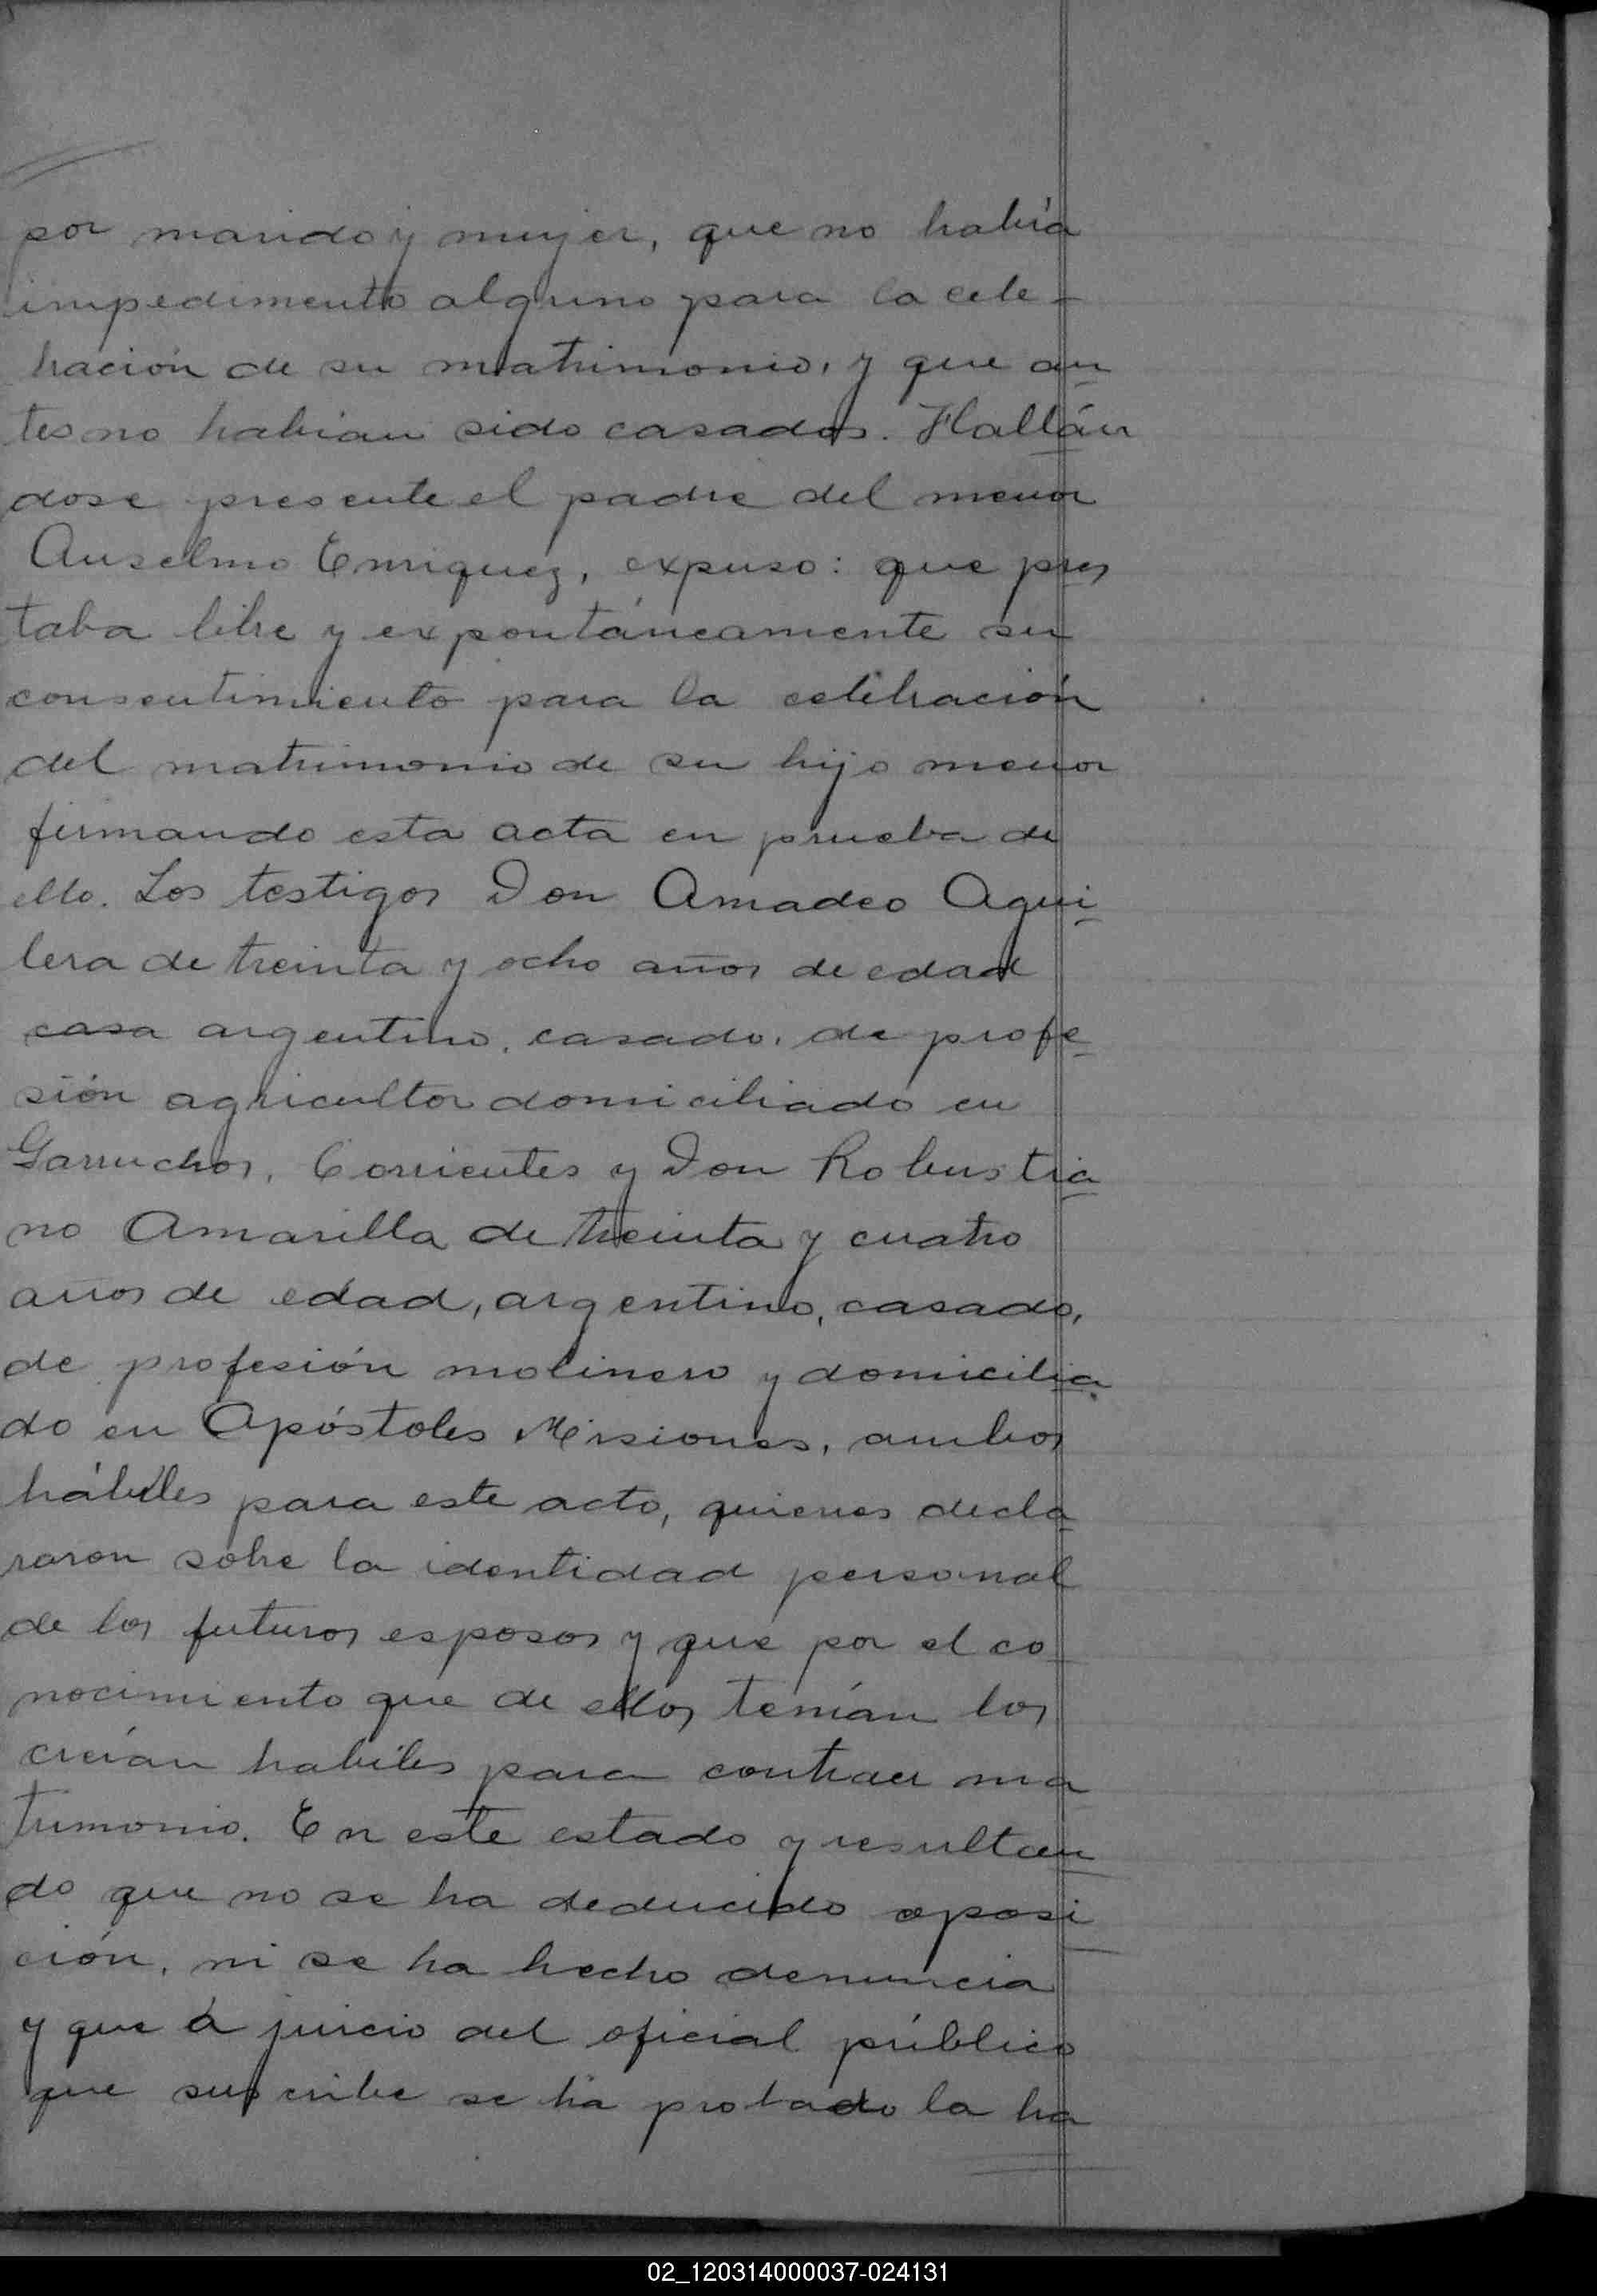 por marido y mujer, que no había
impedimento alguno para la cele-
bración de su matrimonio, y que an
tes no habian sido casados. Hallán
dose presente el padre del menor
Anselmo Enriquez, expuso: que pres
taba libre y expontáneamente su
consentimiento para la celebración
del matrimonio de su hijo menor
firmando esta acta en prueba de
ello. Los testigos Don Amadeo Agui
lera de treinta y ocho años de edad
casa argentino, casado, de profe
sión agricultor domiciliado en
Garruchos, Corrientes y Don Robustia
no Amarilla de treinta y cuatro
años de edad, argentino, casado,
de profesión molinero y domicilia
do en Apóstoles Misiones, ambos
hábiles para este acto, quienes decla
raron sobre la identidad personal
de los futuros esposos y que por el co
nocimiento que de ellos tenían los
creían habiles para contraer ma
trimonio. En este estado y resultan
do que no se ha deducido oposi
ción, ni se ha hecho denuncia
y que á juicio del oficial público
que suscribe se ha probado la ha
02_120314000037-024131